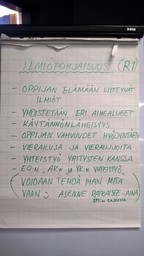 ILMIÖPOHJAISUUS (R1)
- OPPIJAN ELÄMÄÄN LIITTYVÄT
ILMIÖT
- YHDISTETÄÄN ERI AIHEALUEET
- KÄYTÄNNÖNLÄHEISYYS
- OPPIJAN VAHVUUDET HYÖDYNTÄEN
- VIERAILUJA JA VIERAILIJOITA
- YHTEISTYÖ YRITYSTEN KANSSA
YHTEISTYÖ
(VOIDAAN TEHDÄ IHAN MITÄ
VAAN :) ASENNE RATKAISEE AINA)